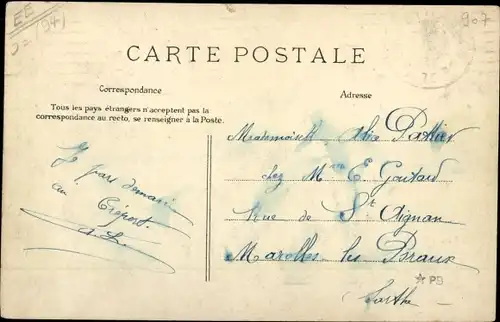 EE
(94)
907
CARTE POSTALE
Correspondance
Adresse
Tous les pays étrangers n'acceptent pas la
correspondance au recto, se renseigner à la Poste.
Je pars demain
au Tréport.
A. L.
Mademoiselle Alice
chez Mme E. Goutard
rue de St Aignan
Marolles les Braux
Sarthe
PB